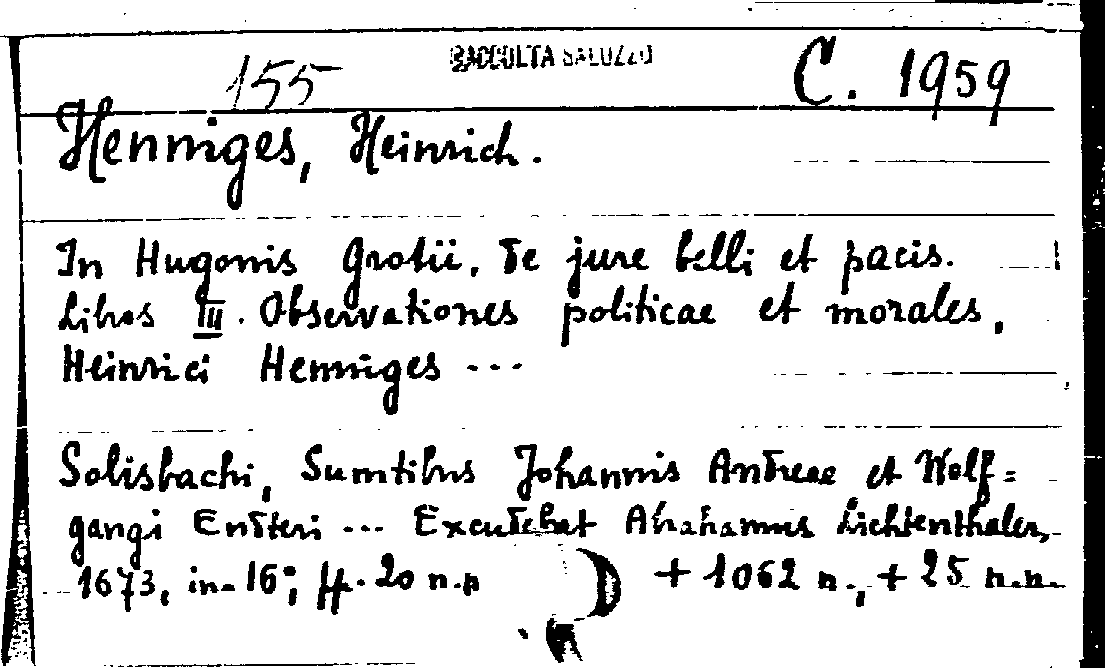 155 RACCOLTA SALUZZO C. 1959
Henniges, Heinrich.
In Hugonis Grotii, de jure belli et pacis.
Libros III. Observationes politicae et morales,
Heinrici Henniges ...
Solisbachi, Sumtibus Johannis Andreae et Wolf=
gangi Endteri ... Excudebat Abrahamus Lichtenthaler,
1673, in-16°; ff. 20 n.n + 1062 n., + 25 n.n.